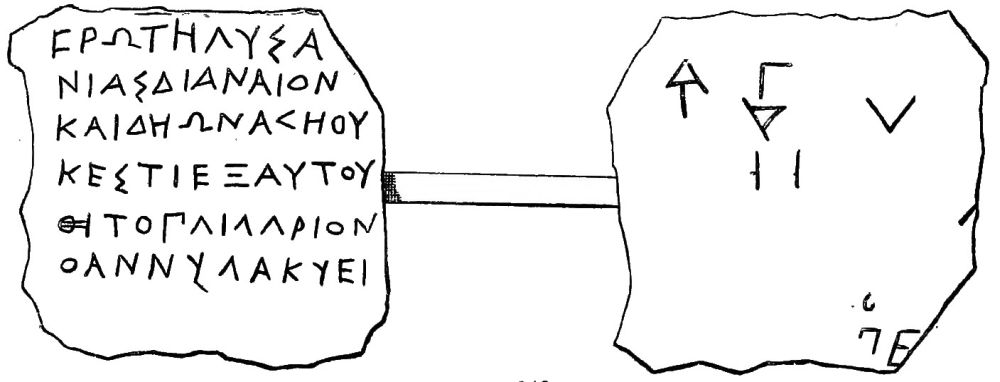 ΕΡΩΤΗΛΥΣΑ
ΝΙΑΣΔΙΑΝΑΙΟΝ
ΚΑΙΔΗΩΝΑ<ΗΟΥ
ΚΕΣΤΙΕΞΑΥΤΟΥ
ΤΟΠΛΙΛΛΡΙΟΝ
ΟΑΝΝΥΛΑΚΥΕΙ